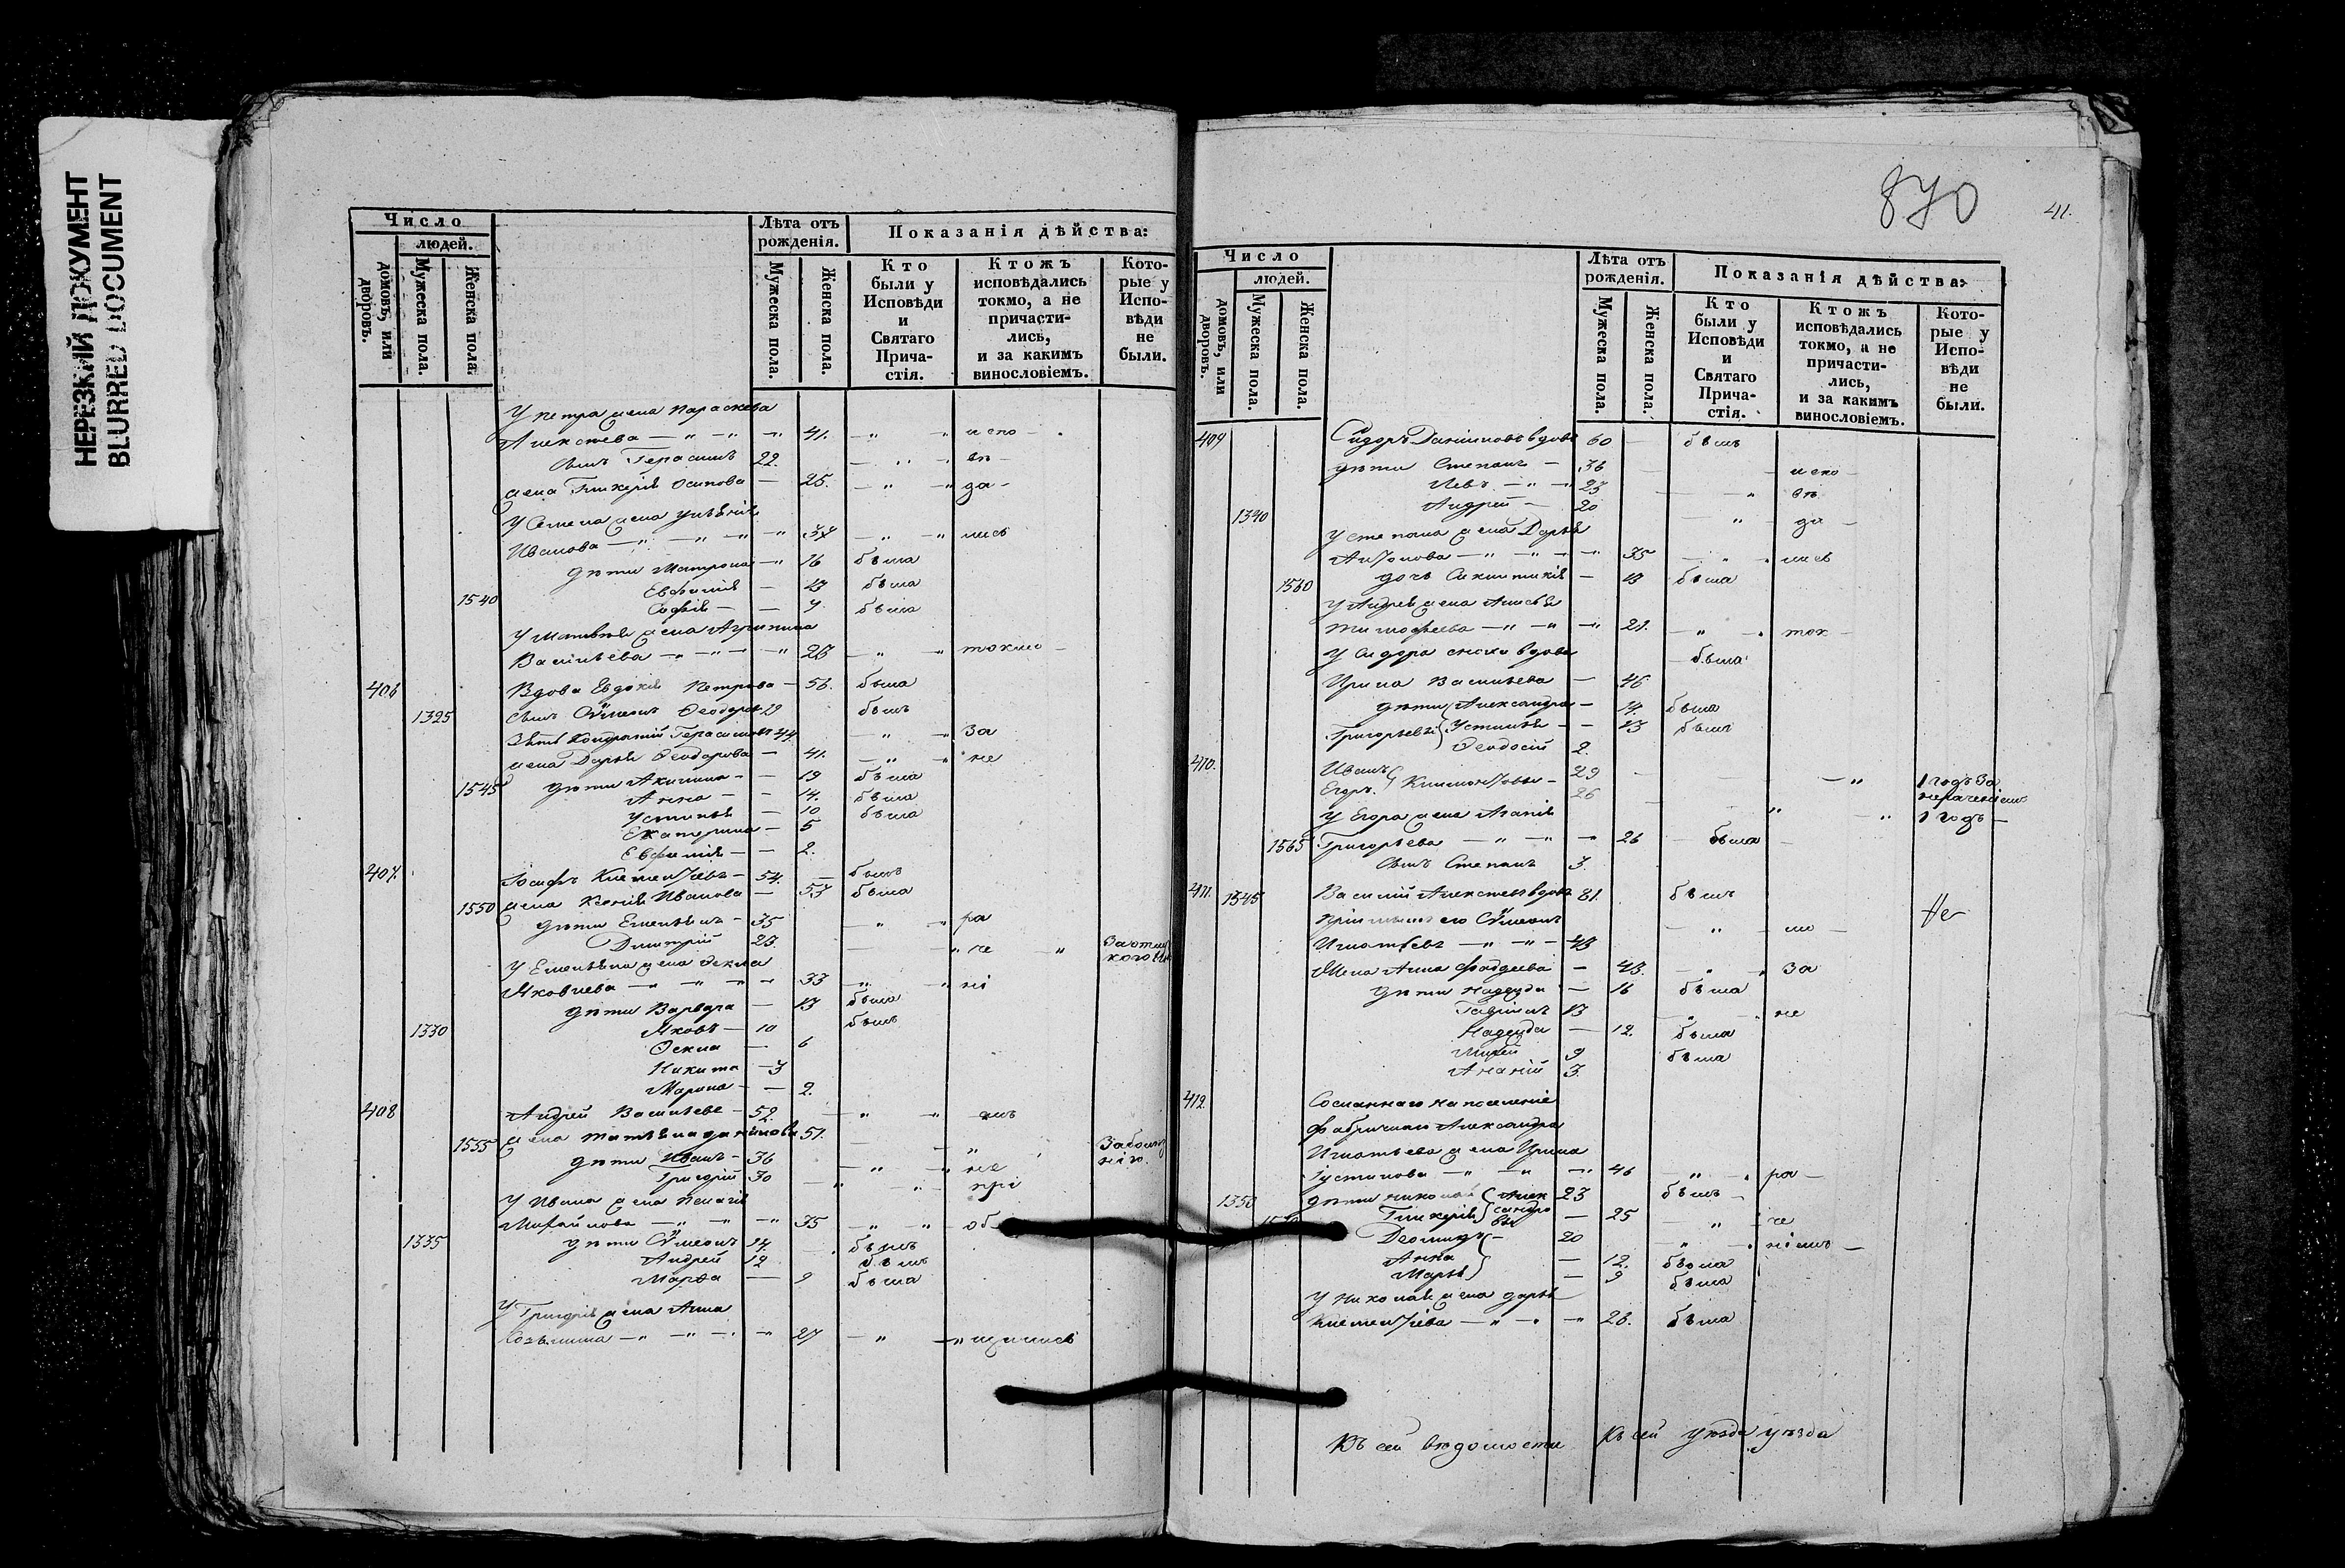 НЕРЕЗКИЙ ДОКУМЕНТ
BLURRED DOCUMENT
Число
людей.
домовъ, или дворовъ.
Мужеска пола.
Женска пола.
Лѣта отъ рожденія.
Мужеска пола.
Женска пола.
Показанія дѣйства:
Кто были у Исповѣди и Святаго Прича-стія.
Ктожъ исповѣдались токмо, а не причасти-лись, и за какимъ винословіемъ.
Кото-рые у Испо-вѣди не были.
У Петра жена Параскева
Алексѣева — 41. испо
сынъ Герасимъ 22. вѣ
жена Гликерія Осипова — 25. да
У Семена жена
Иванова — 37 лись
дѣти Матрона — 16 была
Евфимія — 13 была
1540 Софія — 7. была
У Матвѣя жена Агрипина
Васильева — 26 токмо
406 Вдова Евдокія Петрова — 56. была
1325 сынъ Сѵмеонъ Феодоровъ 29 былъ
Зять Кондратій Герасимовъ 44 За
жена Дарья Феодорова — 41. не
1545 дѣти Акилина — 19 была
Анна — 14. была
Устинья — 10 была
Екатерина — 5
Евфимія — 2.
407. Іосифъ Климентьевъ — 54. былъ
1550 жена Ксенія Иванова — 53 была
дѣти Емельянъ — 35 ра
Димитрій 23. че
У Емельяна жена Фекла
Яковлева — 33 ні
дѣти Варвара — 13 была
1330 Яковъ — 10 былъ
Фекла — 6
Никита — 3
Марина — 2.
408 Андрей Васильевъ — 52. емъ
1555 жена Татьяна Данилова 51. Заболез
дѣти Иванъ — 36 не нію.
Григорій 30 прі
У Ивана жена Пелагія
Михайлова — 35 об
1335 дѣти Сѵмеонъ 14. былъ
Андрей 12 былъ
Марѳа — 9 была
У Григорія жена Анна
Козьмина — 27 щились
870
41.
Число
людей.
домовъ, или дворовъ.
Мужеска пола.
Женска пола.
Лѣта отъ рожденія.
Мужеска пола.
Женска пола.
Показанія дѣйства:
Кто были у Исповѣди и Святаго Прича-стія.
Ктожъ исповѣдались токмо, а не причасти-лись, и за какимъ винословіемъ.
Кото-рые у Испо-вѣди не были.
409 Сидоръ Даніиловъ вдовъ 60 былъ
дѣти Степанъ — 36 испо
Левъ — 23 вѣ
1340 Андрей — 20 да
У Степана жена Дарья
Антонова — 35 лись
1560 дочь Синклитикія — 13 была
У Андрея жена
Тимофеева — 21. ток
У Сидора сноха вдова была
Ирина Васильева — 46
дѣти Александра — 14. была
Григорьевы Устинья — 13 была
Феодосій 2.
410. Иванъ 29 1 годъ За
Егоръ 26 нераченіемъ
У Егора жена Агапія 1 годъ
1565 Григорьева — 26 была
сынъ Степанъ 3.
411. 1345 Василій Алексѣевъ вдовъ 81. былъ
его Сѵмеонъ Не
Игнатьевъ — 43 мо
Жена Анна Фаддеева — 43. За
дѣти Надежда — 16 была
Гавріилъ 13 не
Надежда — 12. была
9 была
Ананій 3.
412. Сосланнаго на поселеніе
фабричнаго Александра
Игнатьева жена Ирина
Іустинова — 46 ра
1350 дѣти Николай 23 былъ
Гликерія 25 че
20 ніемъ
Анна — 12. была
Марья — 9 была
У Николая жена Дарья
Климентіева — 26. была
Къ сей вѣдомости Къ сей уѣзда уѣзда